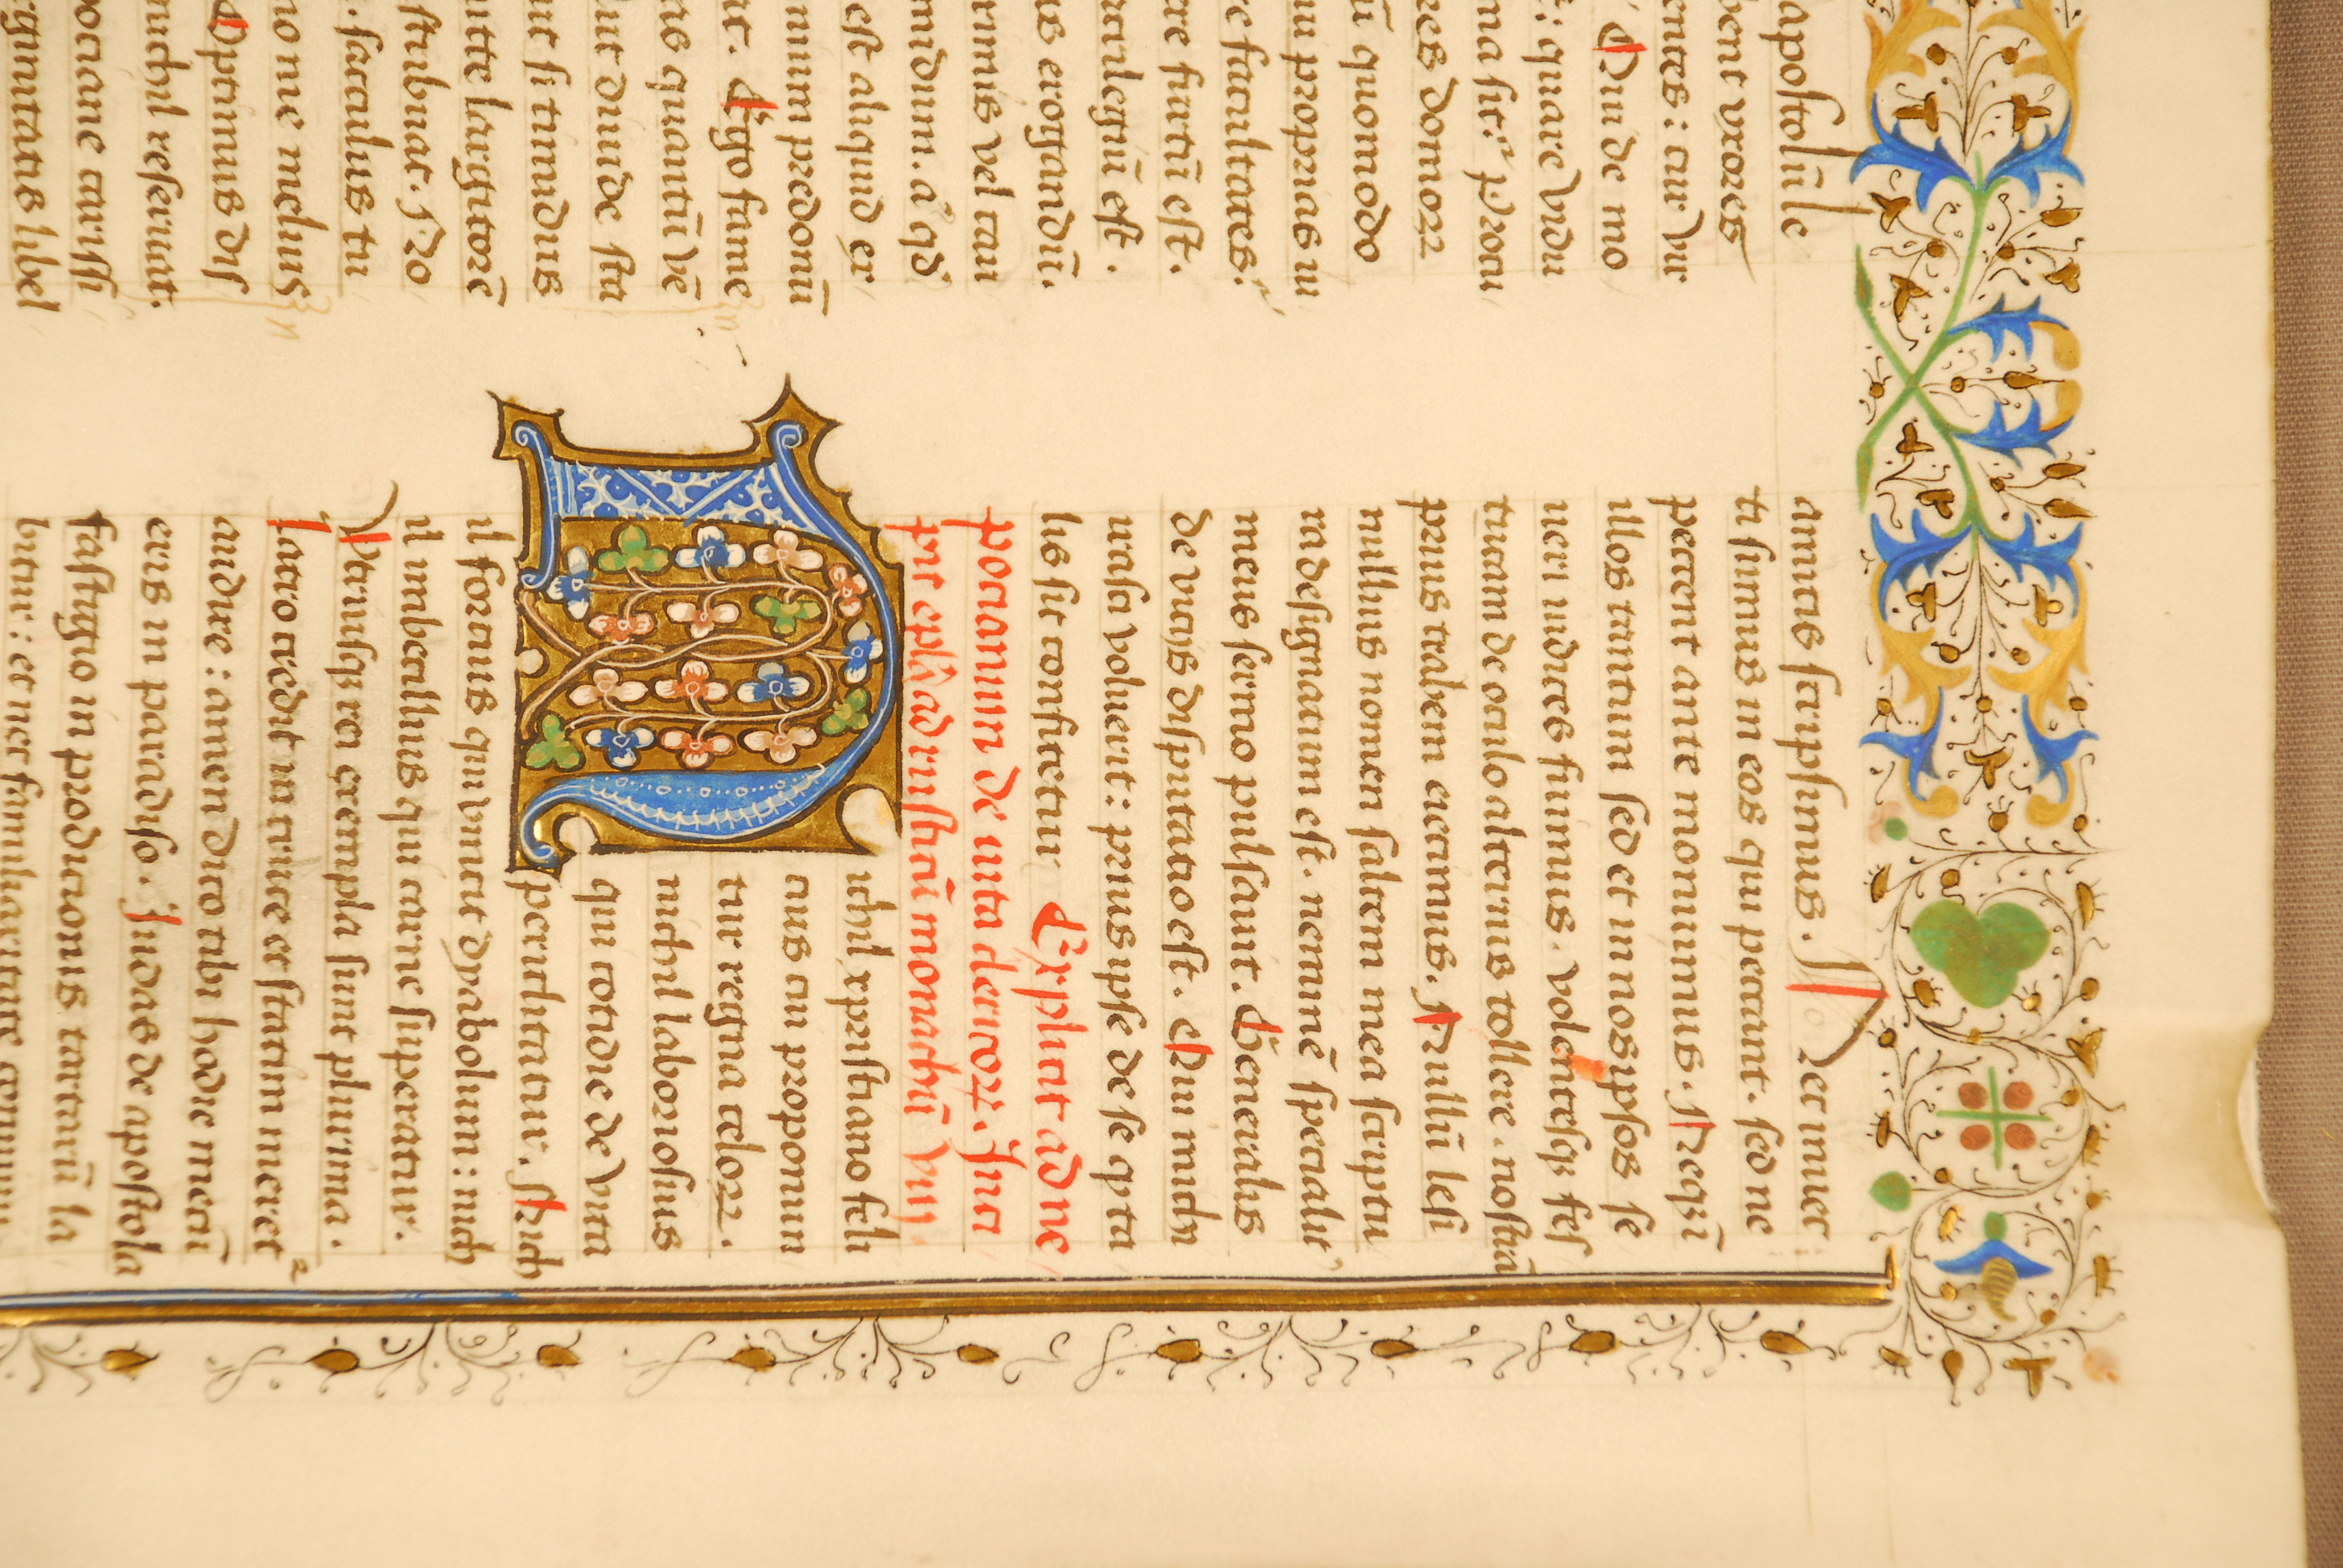 apostolūle
bent vxores
entes: cur vir
Qui de mo
: quare vidu
ma sit: procu
res domorꝝ
ū quomodo
iu proprias
re facultates:
re furtū est.
crilegiū est.
is erogandū.
imis vel cau
midum. a qd
est aliquid er
nium predoniū
Ergo fame
us quantū vē
ut diuide sta
ur si timidus
itte largitorē
stribuat. No
. sacculus tu
no me melius
Optimus dis
nichil reseruat.
pociane carissi
rginitatis libel
amicus scripsimus. Nec inuec
ti sumus in eos qui peccant. sed ne
peccent ante monuimus. Neqꝫ ī
illos tantum sed et in nos ipsos se
ueri iudices fuimus. volentesqꝫ fes
tucam de oculo alterius tollere. nostrā
prius trabem eiecimus. Nullū lesi
nullius nomen saltem mea scriptu
ra designatum est. neminē specialit'
meus sermo pulsauit. Generalis
de vicijs disputatio est. Qui michi
irasci voluerit: prius ipse de se q̄ ta
lis sit confitetur Explicit ad ne
pocianum de uita clericoꝝ. Inci
pit epl'a ad rusticū monachū viij.
Nichil xpristiano feli
cius cui promittun
tur regna celorꝝ.
nichil laboriosius
qui cotidie de vita
periclitatur. Nich
il forcius qui vincit dyabolum: nich
il imbecillius qui carne superatur.
Vtriusqꝫ rei exempla sunt plurima.
Latro credit in cruce et statim meret
audire: amen dico tibi hodie mecū
eris in paradiso. Iudas de apostola
tus fastigio in prodicionis tartarū la
bitur: et nec familiaritate conuiuii